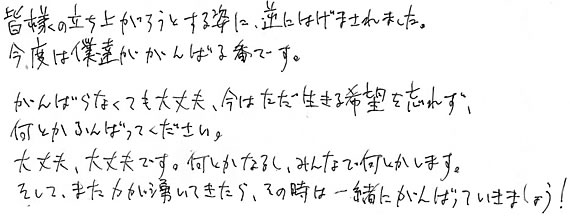 皆様の立ち上がろうとする姿に、逆にはげまされました。
今度は僕達ががんばる番です。
がんばらなくても大丈夫、今はただ生きる希望を忘れず、
何とかふんばってください。
大丈夫、大丈夫です。何とかなるし、みんなで何とかします。
そして、また力が湧いてきたら、その時は一緒にがんばっていきましょう！